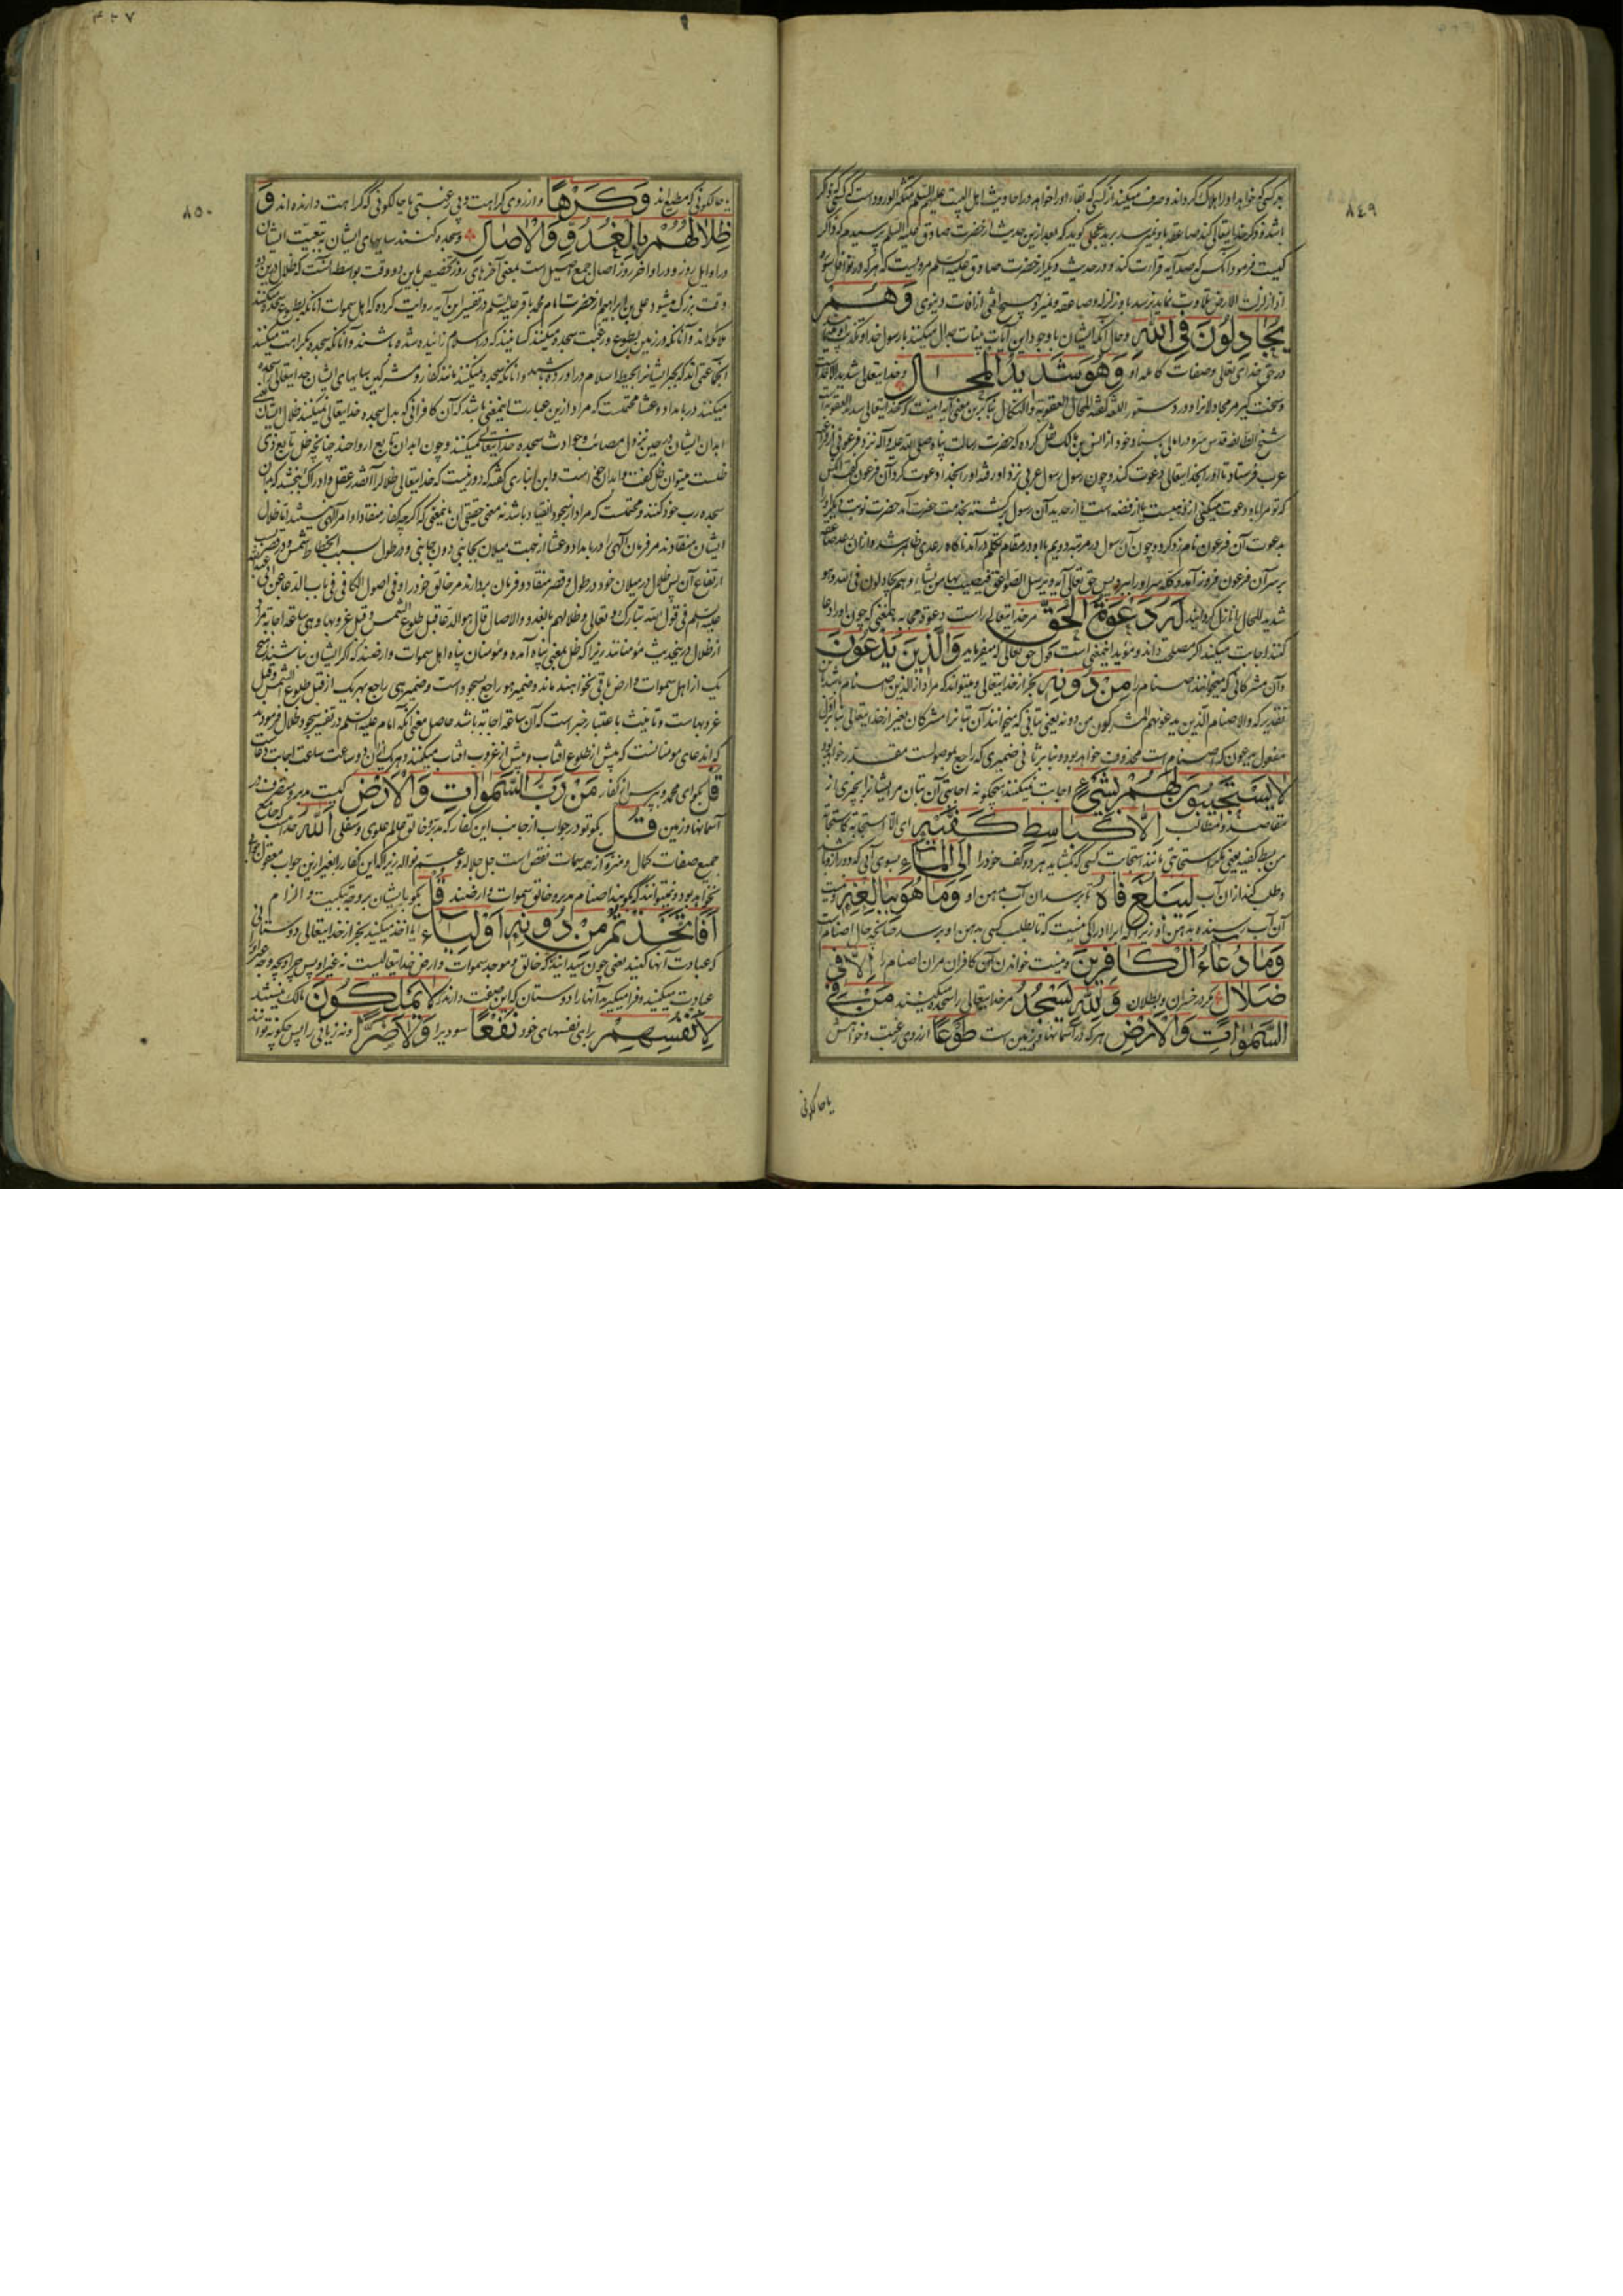 ٨٤٩
هر کسی که خواهد او را هلاک گرداند و صرف میکند از کسی که بقاء او را خواهد و در احادیث اهل البیت علیهم السلم
باشد و ذکر خدایتعالی کند صاعقه باو نمیرسد برید عجلی گوید که بعد ازین حدیث از حضرت صادق علیه السلم پرسیدم که ذاکر
کیست فرمود آنکس که صد آیه قراءت کند و در حدیث دیگر از حضرت صادق علیه السلم مرویست که هر که در نوافل سوره
اذا زلزلت الارض تلاوت نماید نرسد باو زلزله و صاعقه و نمیرد و هیچ آفتی از آفات دنیوی وَهُمْ
یُجَادِلُونَ فِی اللّٰهِ و حال آنکه ایشان با وجود این آیات بینات جدال میکنند با رسول خدا و تکذیب او مینمایند
در حق خدای تعالی و صفات کامله او وَهُوَ شَدِیدُ الْمِحَالِ و خدایتعالی شدید
و سخت گیر مر مجادلانرا و در دستور اللغه گفته المحال العقوبة والنکال بنابرین معنی آیه اینست که خدایتعالی شدید العقوبة
شیخ الطایفه قدس سره در امالی بسناد خود از انس بن مالک نقل کرده که حضرت رسالت پناه صلی الله علیه و آله نزد فرعونی از فراعنه
عرب فرستاد تا او را بخدایتعالی دعوت کند و چون رسول رسول عربی نزد او رفت و او را بخدا دعوت کرد آن فرعون گفت آنکس
که تو مرا باو دعوت میکنی از نقره هست یا از فضه است یا از حدید آن رسول برگشته بخدمت حضرت آمد حضرت نوبت دیگر او را
بدعوت آن فرعون نامزد کرد و چون آن رسول در مرتبه دویم با او در مقام تکلم درآمد ناگاه رعدی ظاهر شد و از آن رعد صاعقه
بر سر آن فرعون فرود آمد و کله سر او را ببرد پس حق تعالی آیه و یرسل الصواعق فیصیب بها من یشاء و هم یجادلون فی الله و هو
شدید المحال را نازل گردانید لَهُ دَعْوَةُ الْحَقِّ مر خدایتعالی راست دعوة مجابه بمعنی که چون او را دعا
کنند اجابت میکند اگر مصلحت داند و مؤید اینمعنی است قول حق تعالی که میفرماید وَالَّذِینَ یَدْعُونَ
و آن مشرکانی که میخوانند اصنام را مِنْ دُونِهِ بجز از خدایتعالی و میتواند که مراد از الذین اصنام باشد
تقدیر که والاصنام الذین یدعونهم المشرکون من دونه یعنی بتانی که میخوانند آن بتانرا مشرکان بغیر از خدایتعالی بنا بر اول
مفعول یدعون که اصنام است محذوف خواهد بود و بنابر ثانی ضمیری که راجع بموصولست مقدر خواهد بود
لَا یَسْتَجِیبُونَ لَهُمْ بِشَیْءٍ اجابت نمیکنند هیچگونه اجابتی آن بتان مر ایشانرا بچیزی از
مقاصد و مطالب اِلَّا کَبَاسِطِ کَفَّیْهِ ای الا استجابة کاستجابة
من بسط کفیه یعنی مگر استجابتی مانند استجابت کسی که بگشاید هر دو کف خود را اِلَی الْمَاءِ بسوی آبی که دور از او باشد
و طلب کند از آن آب لِیَبْلُغَ فَاهُ رسیدن آب بدهن او وَمَا هُوَ بِبَالِغِهِ و نیست
آن آب رسنده بدهن او زیرا که آبرا ادراکی نیست که تا بطلب کسی بدهن او برسد چنانچه حال اصنام است
وَمَا دُعَاءُ الْکَافِرِینَ و نیست خواندن آن کافران مر آن اصنام را اِلَّا فِی
ضَلَالٍ مگر در خسران و بطلان وَلِلّٰهِ یَسْجُدُ مر خدایتعالی را سجده میکنند مَنْ فِی
السَّمٰوَاتِ وَالْاَرْضِ هر که در آسمانها و زمین است طَوْعًا از روی رغبت و خواهش
یا حالکونی
٨٥٠
یا حالکونی که مطیع‌اند وَکَرْهًا و از روی کراهت و بی رغبتی یا حالکونی که کراهت دارنده‌اند وَ
ظِلَالُهُمْ بِالْغُدُوِّ وَالْاٰصَالِ و سجده کنند سایهای ایشان به تبعیت ایشان
در اوایل روز و در اواخر روز اصال جمع اصیل است بمعنی آخرهای روز تخصیص باین دو وقت بواسطه آنست که ظلال درین دو
وقت بزرگ میشود علی بن ابراهیم از حضرت امام محمد باقر علیه السلم در تفسیر این آیه روایت کرده که اهل سموات آنانکه بطوع سجده میکنند
ملائکه‌اند و آنانکه در زمین بطوع و رغبت سجده میکنند کسانیند که در اسلام زائیده شده باشند و آنانکه سجده بکراهت میکنند
آنجماعتی‌اند که بجبر ایشانرا بحیطه اسلام درآورده باشند و آنانکه سجده میکنند مانند کفار و مشرکین سایهای ایشان خدایتعالی را سجده
میکنند در بامداد و عشا محتملست که مراد ازین عبارت اینمعنی باشد که آن کافرانی که بدل سجده خدایتعالی نمیکنند ظلال ایشان یعنی
ابدان ایشان در حین نزول مصائب و حوادث سجده خدایتعالی میکنند و چون ابدان تابع ارواحند چنانچه ظل تابع ذی
ظلست میتوان ظل گفت و ابدان خواست و ابن انباری گفته که دور نیست که خدایتعالی ظلال را آنقدر عقل و ادراک بخشد که بآن
سجده رب خود کنند و محتملست که مراد از سجود انقیاد باشد نه معنی حقیقی آن بمعنی که اگر چه کفار منقاد اوامر الهی نیستند اما ظلال
ایشان منقادند مر فرمان الهی را در بامداد و عشا از جهت میلان بجانبی دون جانبی و در طول بسبب انحطاط شمس و در قصر بسبب
ارتفاع آن پس ظلال در میلان خود در طول و قصر منقاد و فرمان بردارند مر خالق خود را و فی اصول الکافی فی باب الدعا عن ابی عبدالله
علیه السلم فی قول الله تبارک و تعالی و ظلالهم بالغدو والاصال قال هو الدعا قبل طلوع الشمس و قبل غروبها و هی ساعة اجابة مراد
از ظلال در این حدیث مؤمنانند زیرا که ظل بمعنی پناه آمده و مؤمنان پناه اهل سموات و ارضند که اگر ایشان نباشند هیچ
یک از اهل سموات و ارض باقی نخواهند ماند و ضمیر هو راجع بسجود است و ضمیر هی راجع بهریک از قبل طلوع الشمس و قبل
غروبهاست و تانیث باعتبار خبر است که آن ساعة اجابة باشد حاصل معنی آنکه امام علیه السلم در تفسیر سجود ظلال فرموده
که آن دعای مومنانست که پیش از طلوع آفتاب و پیش از غروب آفتاب میکنند و هریک ازین دو ساعت ساعت اجابت دعاست
قُلْ بگو ای محمد و بپرس از کفار مَنْ رَبُّ السَّمٰوَاتِ وَالْاَرْضِ کیست مدبر و متصرف در
آسمانها و زمین قُلِ بگو تو در جواب از جانب این کفار که مدبر و خالق عالم علوی و سفلی اللّٰهُ خداست که جامع
جمیع صفات کمال و منزه از همه سمات نقص است جل جلاله و عم نواله زیرا که این کفار را بغیر ازین جواب معقول جوابی
نخواهد بود و نمیتوانند که بگویند اصنام مدبر و خالق سموات و ارضند قُلْ بگو با ایشان بر وجه تبکیت و الزام
اَفَاتَّخَذْتُمْ مِنْ دُونِهِ اَوْلِیَاءَ ایا اخذ میکنید بجز از خدایتعالی دوستانی
که عبادت آنها کنید یعنی چون میدانید که خالق و موجد سموات و ارض خدایتعالیست نه غیر او پس چرا و بچه وجه غیر او را
عبادت میکنید و فرا میگیرید آنها را دوستان که این صفت دارند لَا یَمْلِکُونَ مالک نیستند
لِاَنْفُسِهِمْ برای نفسهای خود نَفْعًا سودیرا وَلَا ضَرًّا و نه زیانی را پس چگونه توانند